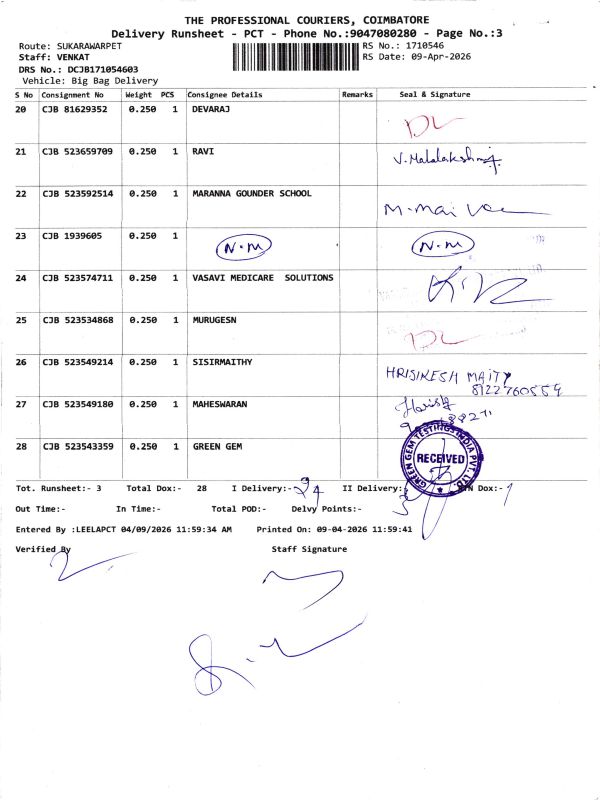 THE PROFESSIONAL COURIERS, COIMBATORE
Delivery Runsheet - PCT - Phone No.:9047080280 - Page No.:3
Route: SUKARAWARPET RS No.: 1710546
Staff: VENKAT RS Date: 09-Apr-2026
DRS No.: DCJB171054603
Vehicle: Big Bag Delivery
S No Consignment No Weight PCS Consignee Details Remarks Seal & Signature
20 CJB 81629352 0.250 1 DEVARAJ DL
21 CJB 523659709 0.250 1 RAVI V. Mahalakshmi
22 CJB 523592514 0.250 1 MARANNA GOUNDER SCHOOL
23 CJB 1939605 0.250 1 N.M N.M
24 CJB 523574711 0.250 1 VASAVI MEDICARE SOLUTIONS
25 CJB 523534868 0.250 1 MURUGESN DL
26 CJB 523549214 0.250 1 SISIRMAITHY HRISIKESH MAITY
8122760559
27 CJB 523549180 0.250 1 MAHESWARAN Harish
28 CJB 523543359 0.250 1 GREEN GEM GREEN GEM TESTINGS INDIA PVT. LTD RECEIVED
Tot. Runsheet:- 3 Total Dox:- 28 I Delivery:- 24 II Delivery:- Dox:-
Out Time:- In Time:- Total POD:- Delvy Points:-
Entered By :LEELAPCT 04/09/2026 11:59:34 AM Printed On: 09-04-2026 11:59:41
Verified By Staff Signature